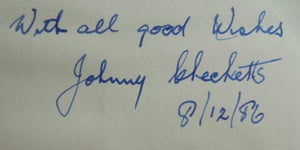 With all good Wishes
Johnny Checketts
8/12/86